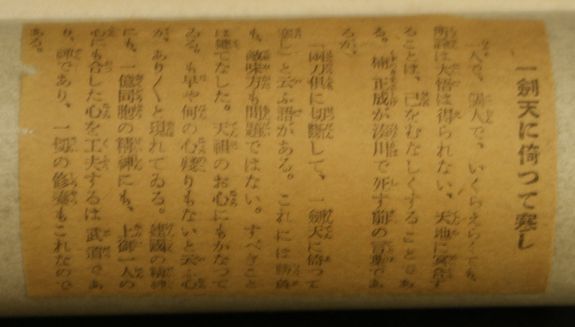 一劍天に倚つて寒し
一人で、個人で、いくらえらくても、
所詮は大悟は得られない。天地に冥合す
ることは、己をむなしくすることであ
る。楠正成が湊川で死す前の言動であ
るが、
「兩刀倶に切斷して、一劍天に倚つて
寒し」と云ふ語がある。これには勝負
も、敵味方も問題ではない。すべきこと
は健てなした。天祖のお心にもかなつて
ゐる。も早や何の心殘りもないと云ふ心
が、あり〱と現れてゐる。建國の精神
にも、一億同胞の精神にも、上御一人の
心にも合した心を工夫するは武道であ
り、禪であり、一切の修養もこれなので
ある。